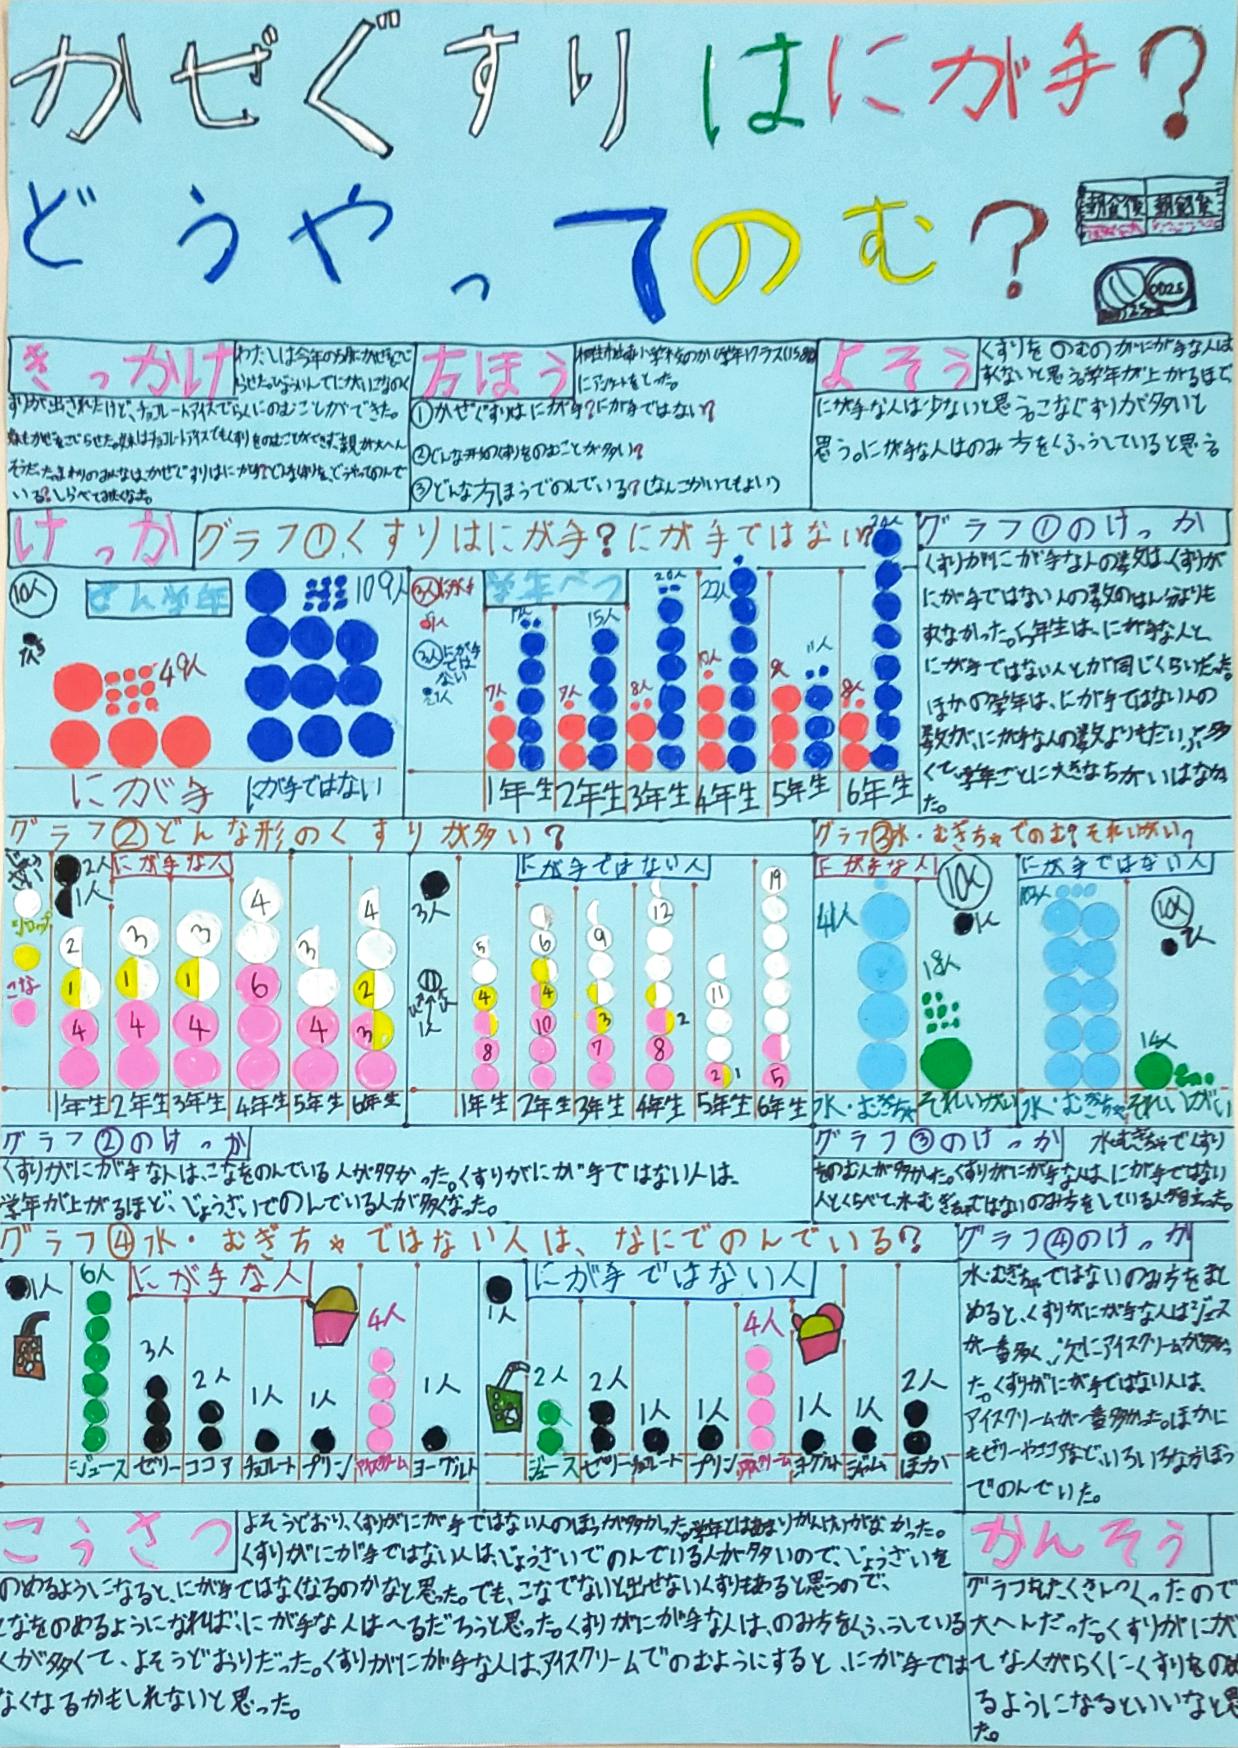 かぜぐすりはにが手?
どうやってのむ?
朝食後 朝食後
きっかけ
わたしは今年の
りが出されたけど、チョコレートアイスでらくにのむことができた。
方ほう
にアンケートをとった。
①かぜぐすりはにが手?にが手ではない?
②どんな形のくすりをのむことが多い?
③どんな方ほうでのんでいる?(なんこかいてもよい)
よそう
くすりをのむのがにが手な人は
すくないと思う。学年が上がるほど
にが手な人は少ないと思う。こなぐすりが多いと
思う。にが手な人はのみ方をくふうしていると思う
けっか
グラフ①くすりはにが手?にが手ではない?
10人
ぜん学年
49人
109人
にが手
にが手ではない
学年べつ
7人
7人
15人
8人
20人
22人
11人
8人
1年生 2年生 3年生 4年生 5年生 6年生
グラフ①のけっか
くすりがにが手な人の数は、くすりが
にが手ではない人の数のはん分よりも
すくなかった。5年生は、にが手な人と、
にが手ではない人とが同じくらいだった。
ほかの学年は、にが手ではない人の
数が、にが手な人の数よりもだいぶ多
くて、学年ごとに大きなちがいはなかっ
た。
グラフ②どんな形のくすりが多い?
シロップ
こな
2人
1人
にが手な人
2 1 4
3 1 4
3 1 4
4 6
3 4
4 2 3
1年生 2年生 3年生 4年生 5年生 6年生
3人
1人
にが手ではない人
5 4 8
6 4 10
9 3 7
12 2 8
11 2 1
19 5
1年生 2年生 3年生 4年生 5年生 6年生
グラフ③水・むぎちゃでのむ?それいがい?
にが手な人
10人
1人
41人
18人
水・むぎちゃ それいがい
にが手ではない人
103人
10人
14人
水・むぎちゃ それいがい
グラフ②のけっか
くすりがにが手な人は、こなをのんでいる人が多かった。くすりがにが手ではない人は、
学年が上がるほど、じょうざいでのんでいる人が多くなった。
グラフ③のけっか
水・むぎちゃでくすり
をのむ人が多かった。くすりがにが手な人は、にが手ではない
人とくらべて、水・むぎちゃではないのみ方をしている人が目立った。
グラフ④水・むぎちゃではない人は、なにでのんでいる?
1人
にが手な人
6人
3人
2人
1人
1人
4人
1人
ジュース ゼリー ココア チョコレート プリン アイスクリーム ヨーグルト
1人
にが手ではない人
2人
2人
1人
1人
4人
1人
1人
2人
ジュース ゼリー チョコレート プリン アイスクリーム ヨーグルト ジャム ほか
グラフ④のけっか
水・むぎちゃではないのみ方をまと
めると、くすりがにが手な人はジュース
が一番多く、次にアイスクリームが多かっ
た。くすりがにが手ではない人は、
アイスクリームが一番多かった。ほかに
もゼリーやココアなど、いろいろな方ほう
でのんでいた。
こうさつ
よそうどおり、くすりがにが手ではない人のほうが多かった。学年とはあまりかんけいがなかった。
くすりがにが手ではない人は、じょうざいでのんでいる人が多いので、じょうざいを
のめるようになると、にが手ではなくなるのかなと思った。でも、こなでないと出せないくすりもあると思うので、
こなをのめるようになれば、にが手な人はへるだろうと思った。くすりがにが手な人は、のみ方をくふうしている
人が多くて、よそうどおりだった。くすりがにが手な人は、アイスクリームでのむようにすると、にが手では
なくなるかもしれないと思った。
かんそう
グラフをたくさんつくったので
大へんだった。くすりがにが
てな人がらくにくすりをのめ
るようになるといいなと思
た。